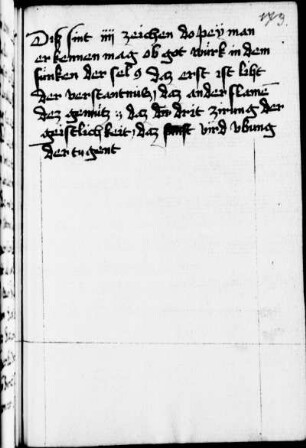 Diß sint iiij zeichen do pey man
erkennen mag ob got würk in dem
funken der sel 9 daz erst ist liht
der verstantnuß, daz ander flame
dez gemütz :, daz drit zirung der
geistlichkeit, daz vird vbung
der tugent